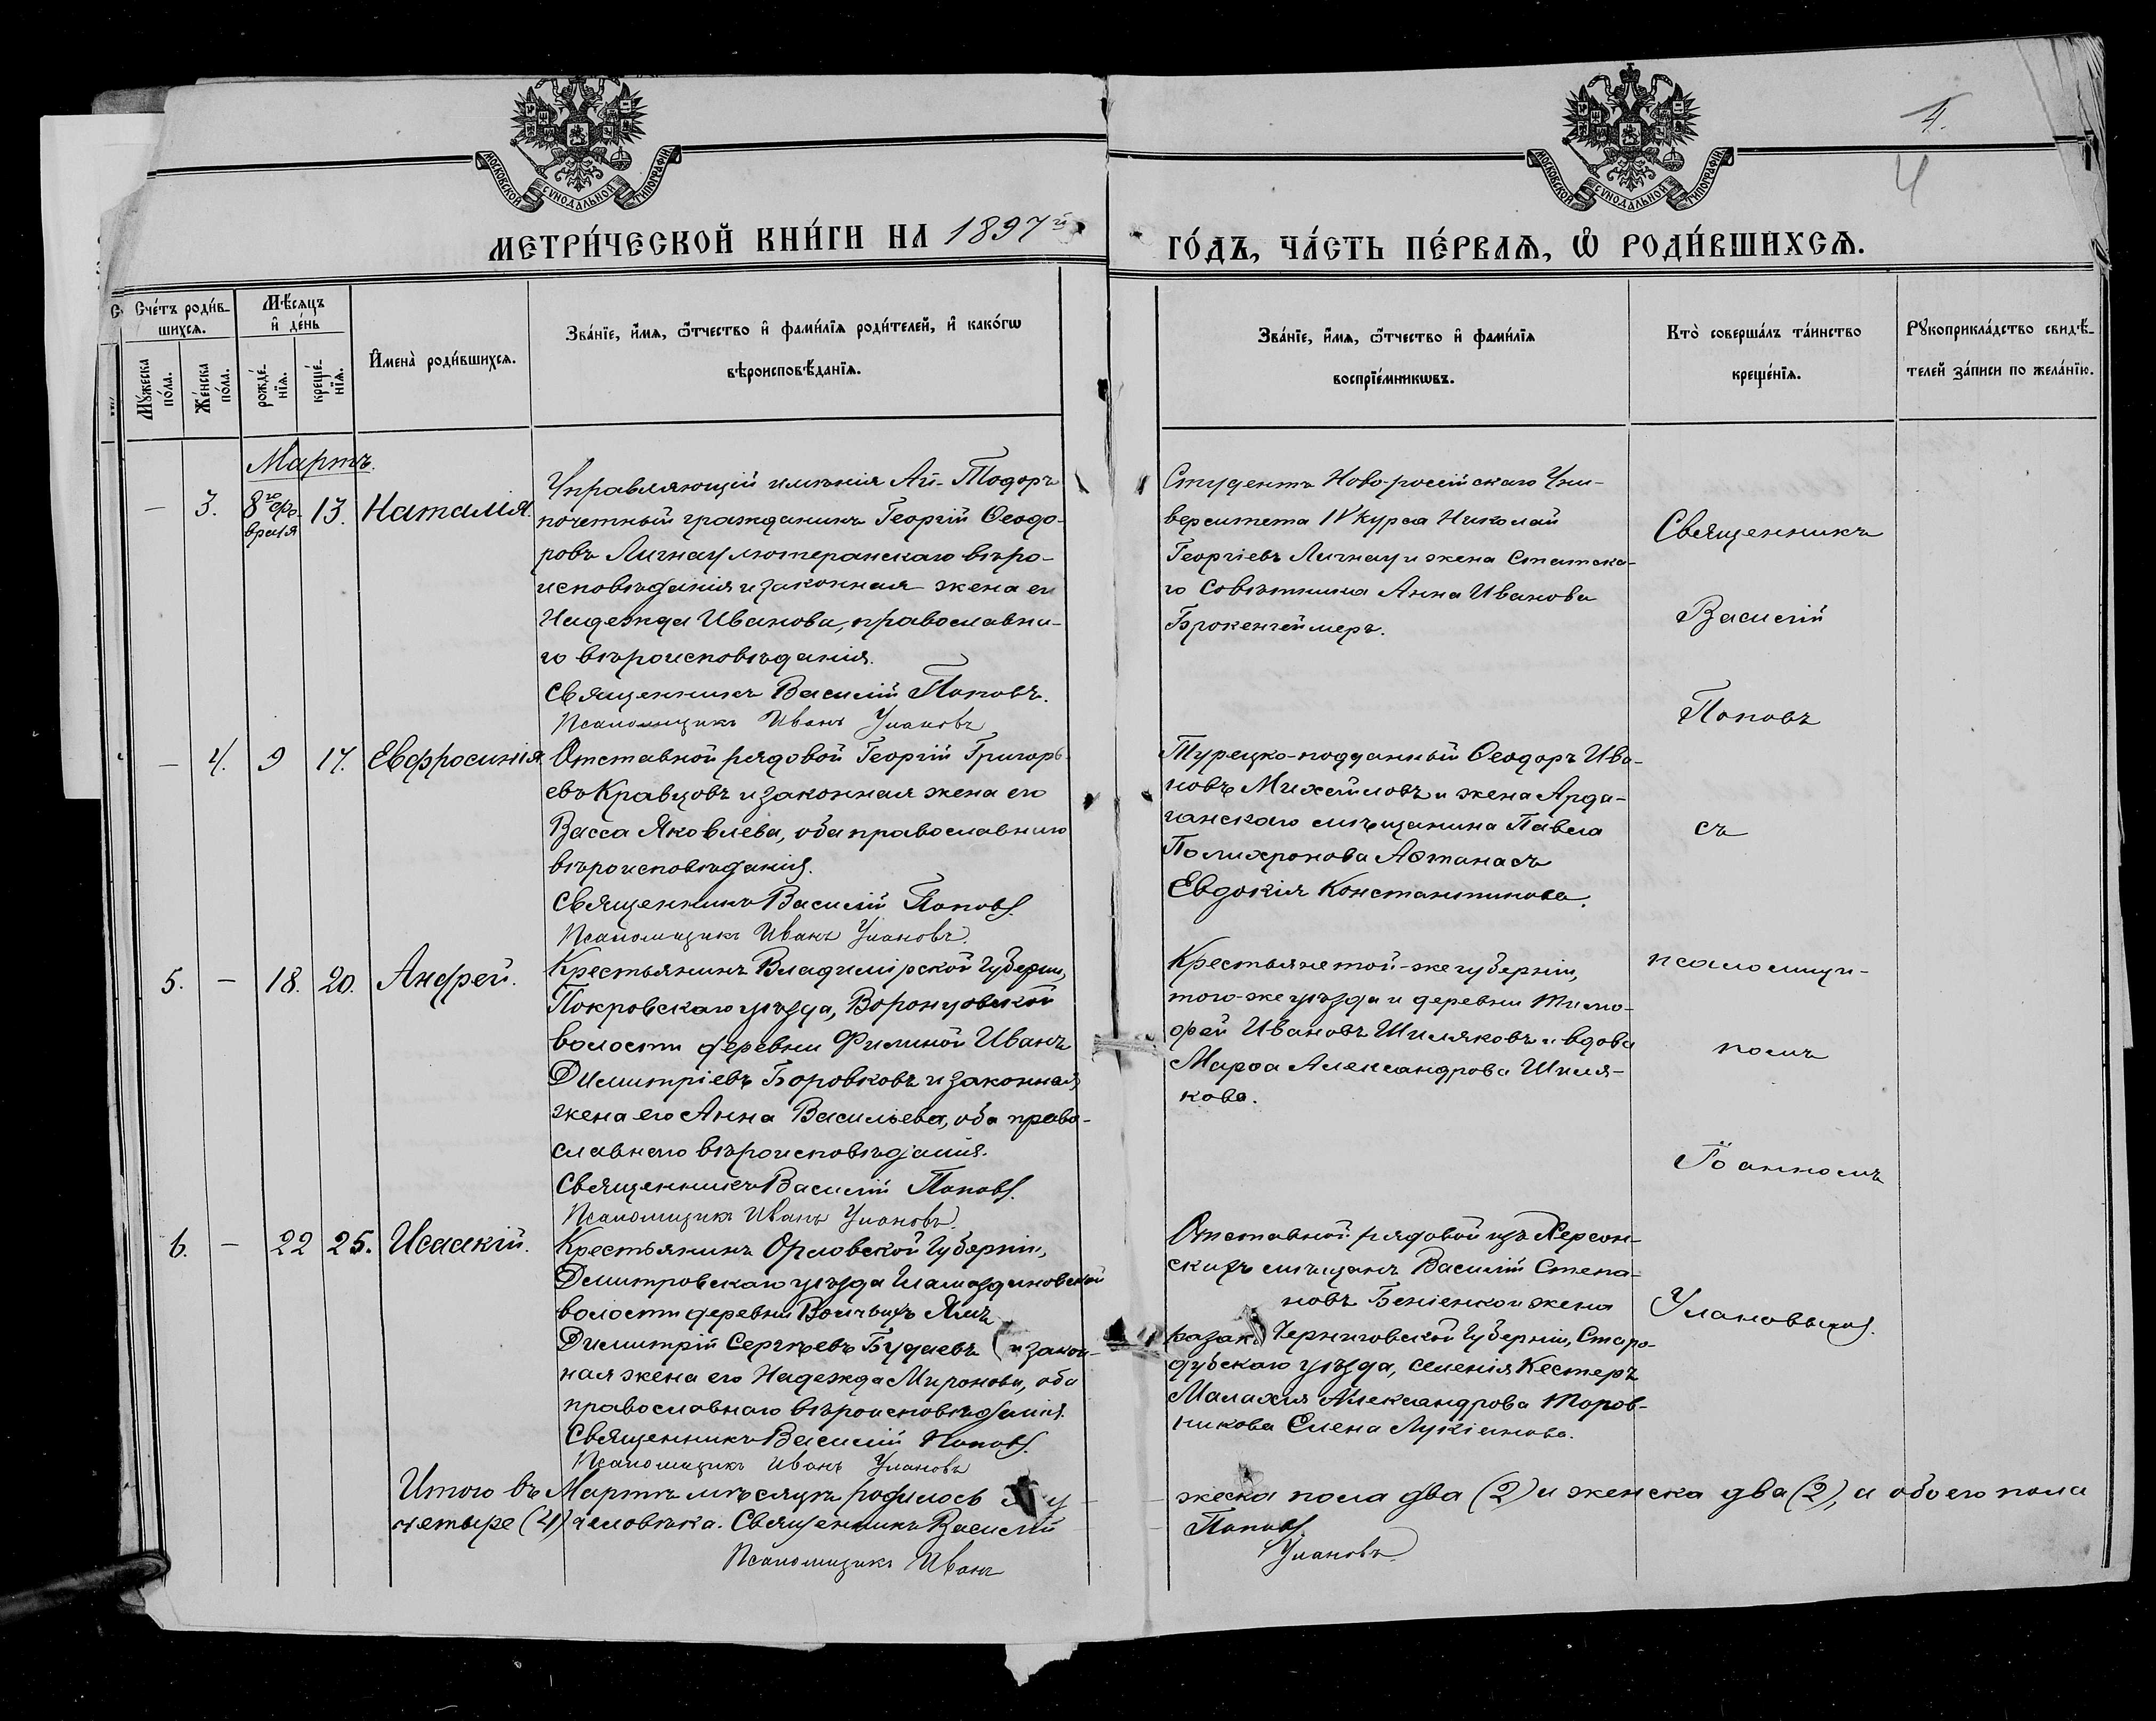 МОСКОВСКОЙ СУНОДАЛЬНОЙ ТИПОГРАФІИ
МОСКОВСКОЙ СУНОДАЛЬНОЙ ТИПОГРАФІИ
4.
4
МЕТРИ́ЧЕСКОЙ КНИ́ГИ НА 1897й
ГО́ДЪ, ЧА́СТЬ ПЕ́РВАѦ, Ѡ РОДИ́ВШИХСѦ.
Сче́тъ роди́в-
шихсѧ.
Мꙋжеска
по́ла.
Же́нска
по́ла.
Мѣ́сѧцъ
и де́нь
рожде́-
нїѧ.
креще́-
нїѧ.
Имена̀ роди́вшихсѧ.
Зва́нїе, и́мѧ, ѻ́тчество и фами́лїѧ роди́телей, и како́гѡ
вѣроисповѣ́данїѧ.
Зва́нїе, и́мѧ, ѻ́тчество и фами́лїѧ
воспрїе́мникѡвъ.
Кто̀ соверша́лъ та́инство
креще́нїѧ.
Рꙋкоприкла́дство свидѣ́-
телей за́писи по жела́нїю.
Мартъ.
— 3. 8го фе-
враля 13. Наталія.
Управляющій имѣнія Ай-Тодоръ
почетный гражданинъ Георгій Ѳеодо-
ровъ Личнау лютеранскаго вѣро-
исповѣданія и законная жена его
Надежда Иванова, православна-
го вѣроисповѣданія.
Священникъ Василій Поповъ.
Псаломщикъ Иванъ Улановъ
Студентъ Ново-россійскаго Уни-
верситета IV курса Николай
Георгіевъ Личнау и жена Статска-
го Совѣтника Анна Иванова
Брокенгеймеръ.
Священникъ
Василій
Поповъ
съ
псаломщи-
комъ
Іоанномъ
Улановымъ.
— 4. 9 17. Евфросинія.
Отставной рядовой Георгій Григорь-
евъ Кравцовъ и законная жена его
Васса Яковлева, оба православнаго
вѣроисповѣданія.
Священникъ Василій Поповъ.
Псаломщикъ Иванъ Улановъ.
Турецко-подданный Ѳеодоръ Ива-
новъ Михайловъ и жена Арда-
ганскаго мѣщанина Павла
Полихронова Автанасъ
Евдокія Константинова.
5. — 18. 20. Андрей.
Крестьянинъ Владимірской Губерніи,
Покровскаго уѣзда, Воронцовской
волости деревни Филиной Иванъ
Димитріевъ Боровковъ и законная
жена его Анна Васильева, оба право-
славнаго вѣроисповѣданія.
Священникъ Василій Поповъ.
Псаломщикъ Иванъ Улановъ.
Крестьяне той-же губерніи,
того-же уѣзда и деревни Тимо-
фей Ивановъ Шиляковъ и вдова
Марѳа Александрова Шиля-
кова.
6. — 22 25. Исаакій.
Крестьянинъ Орловской Губерніи,
Дмитровскаго уѣзда
волости деревни Волчьихъ Ямъ
Димитрій Сергѣевъ Будаевъ и закон-
ная жена его Надежда Миронова, оба
православнаго вѣроисповѣданія.
Священникъ Василій Поповъ.
Псаломщикъ Иванъ Улановъ
Отставной рядовой изъ Херсон-
скихъ мѣщанъ Василій Степа-
новъ и жена
казака Черниговской Губерніи, Старо-
дубскаго уѣзда, селенія Кестеръ
Малахія Александрова
Елена Лукіанова.
Итого въ Мартѣ мѣсяцѣ родилось му-
жеска пола два (2) и женска два (2), а обоего пола
четыре (4) человѣка. Священникъ Василій
Поповъ.
Псаломщикъ Иванъ
Улановъ.